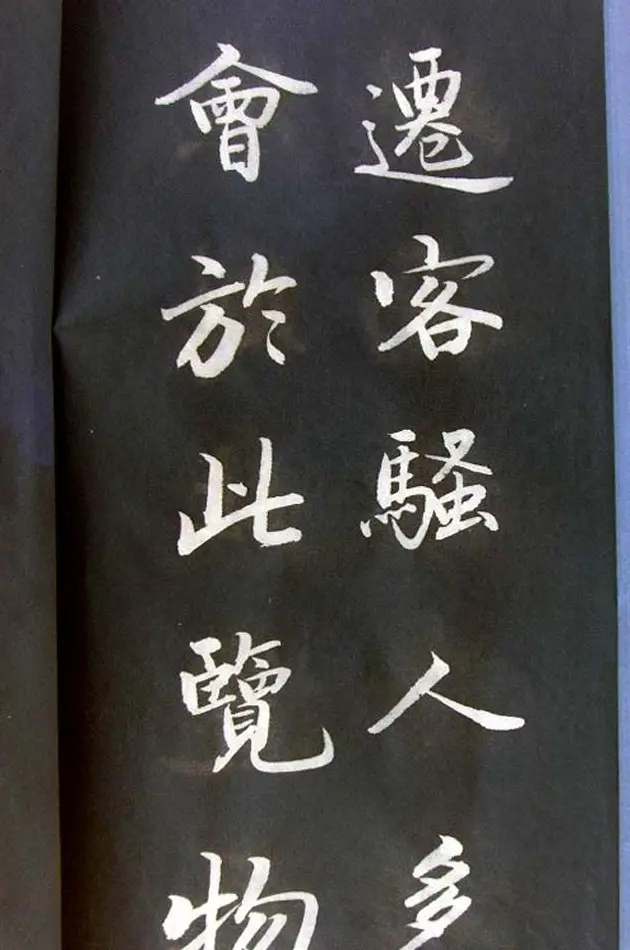 遷客騷人多
會於此覽物